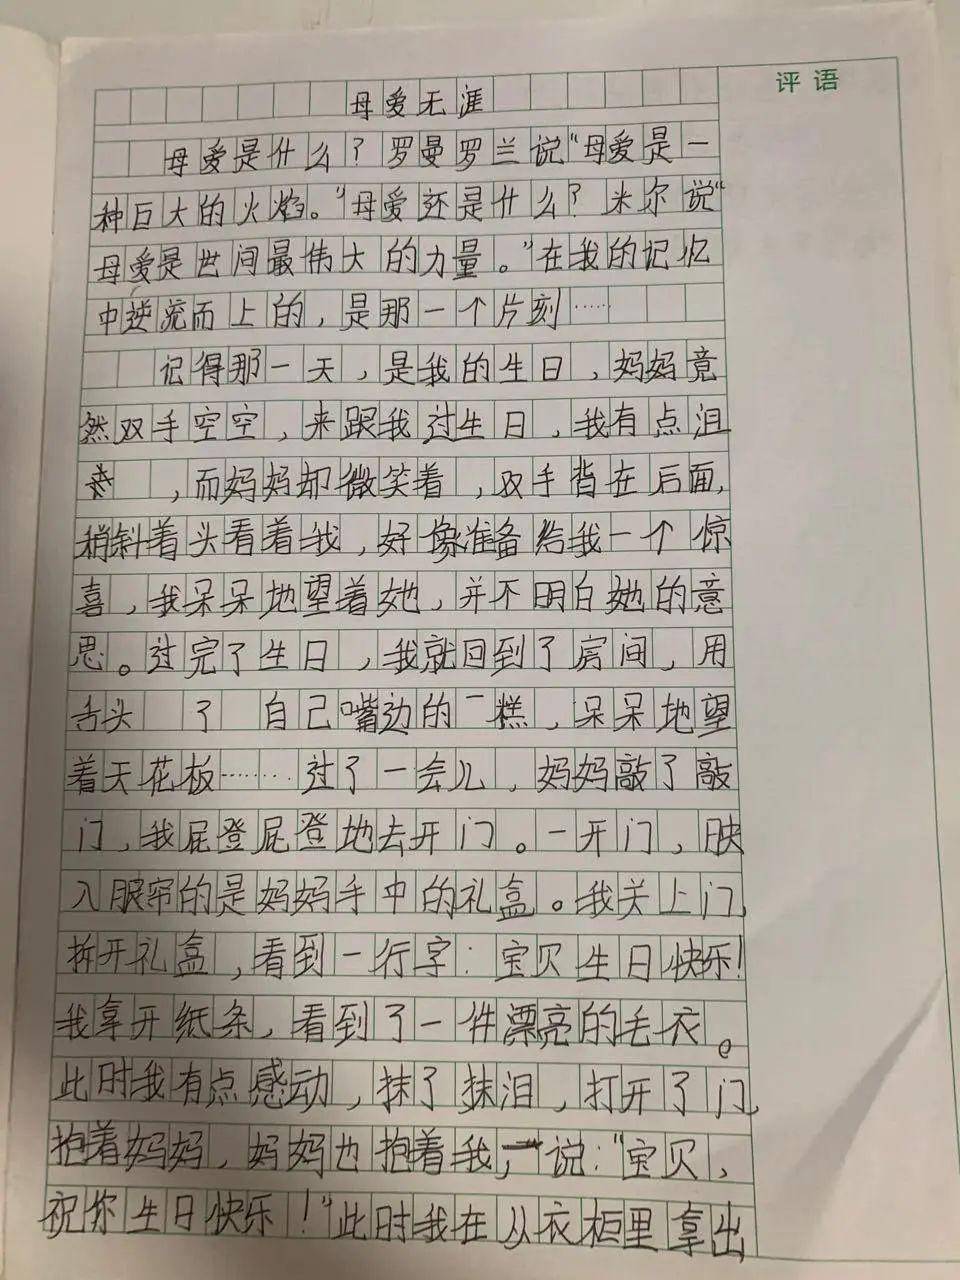 评语
母爱无涯
母爱是什么？罗曼罗兰说“母爱是一
种巨大的火焰。”母爱还是什么？米尔说“
母爱是世间最伟大的力量。”在我的记忆
中逆流而上的，是那一个片刻……
记得那一天，是我的生日，妈妈竟
然双手空空，来跟我过生日，我有点沮
，而妈妈却微笑着，双手背在后面，
稍斜着头看着我，好像准备给我一个惊
喜，我呆呆地望着她，并不明白她的意
思。过完了生日，我就回到了房间，用
舌头 了 自己嘴边的 糕，呆呆地望
着天花板……过了一会儿，妈妈敲了敲
门，我屁登屁登地去开门。一开门，映
入眼帘的是妈妈手中的礼盒。我关上门，
拆开礼盒，看到一行字：宝贝生日快乐！
我拿开纸条，看到了一件漂亮的毛衣。
此时我有点感动，抹了抹泪，打开了门，
抱着妈妈，妈妈也抱着我，说：“宝贝，
祝你生日快乐！”此时我在从衣柜里拿出